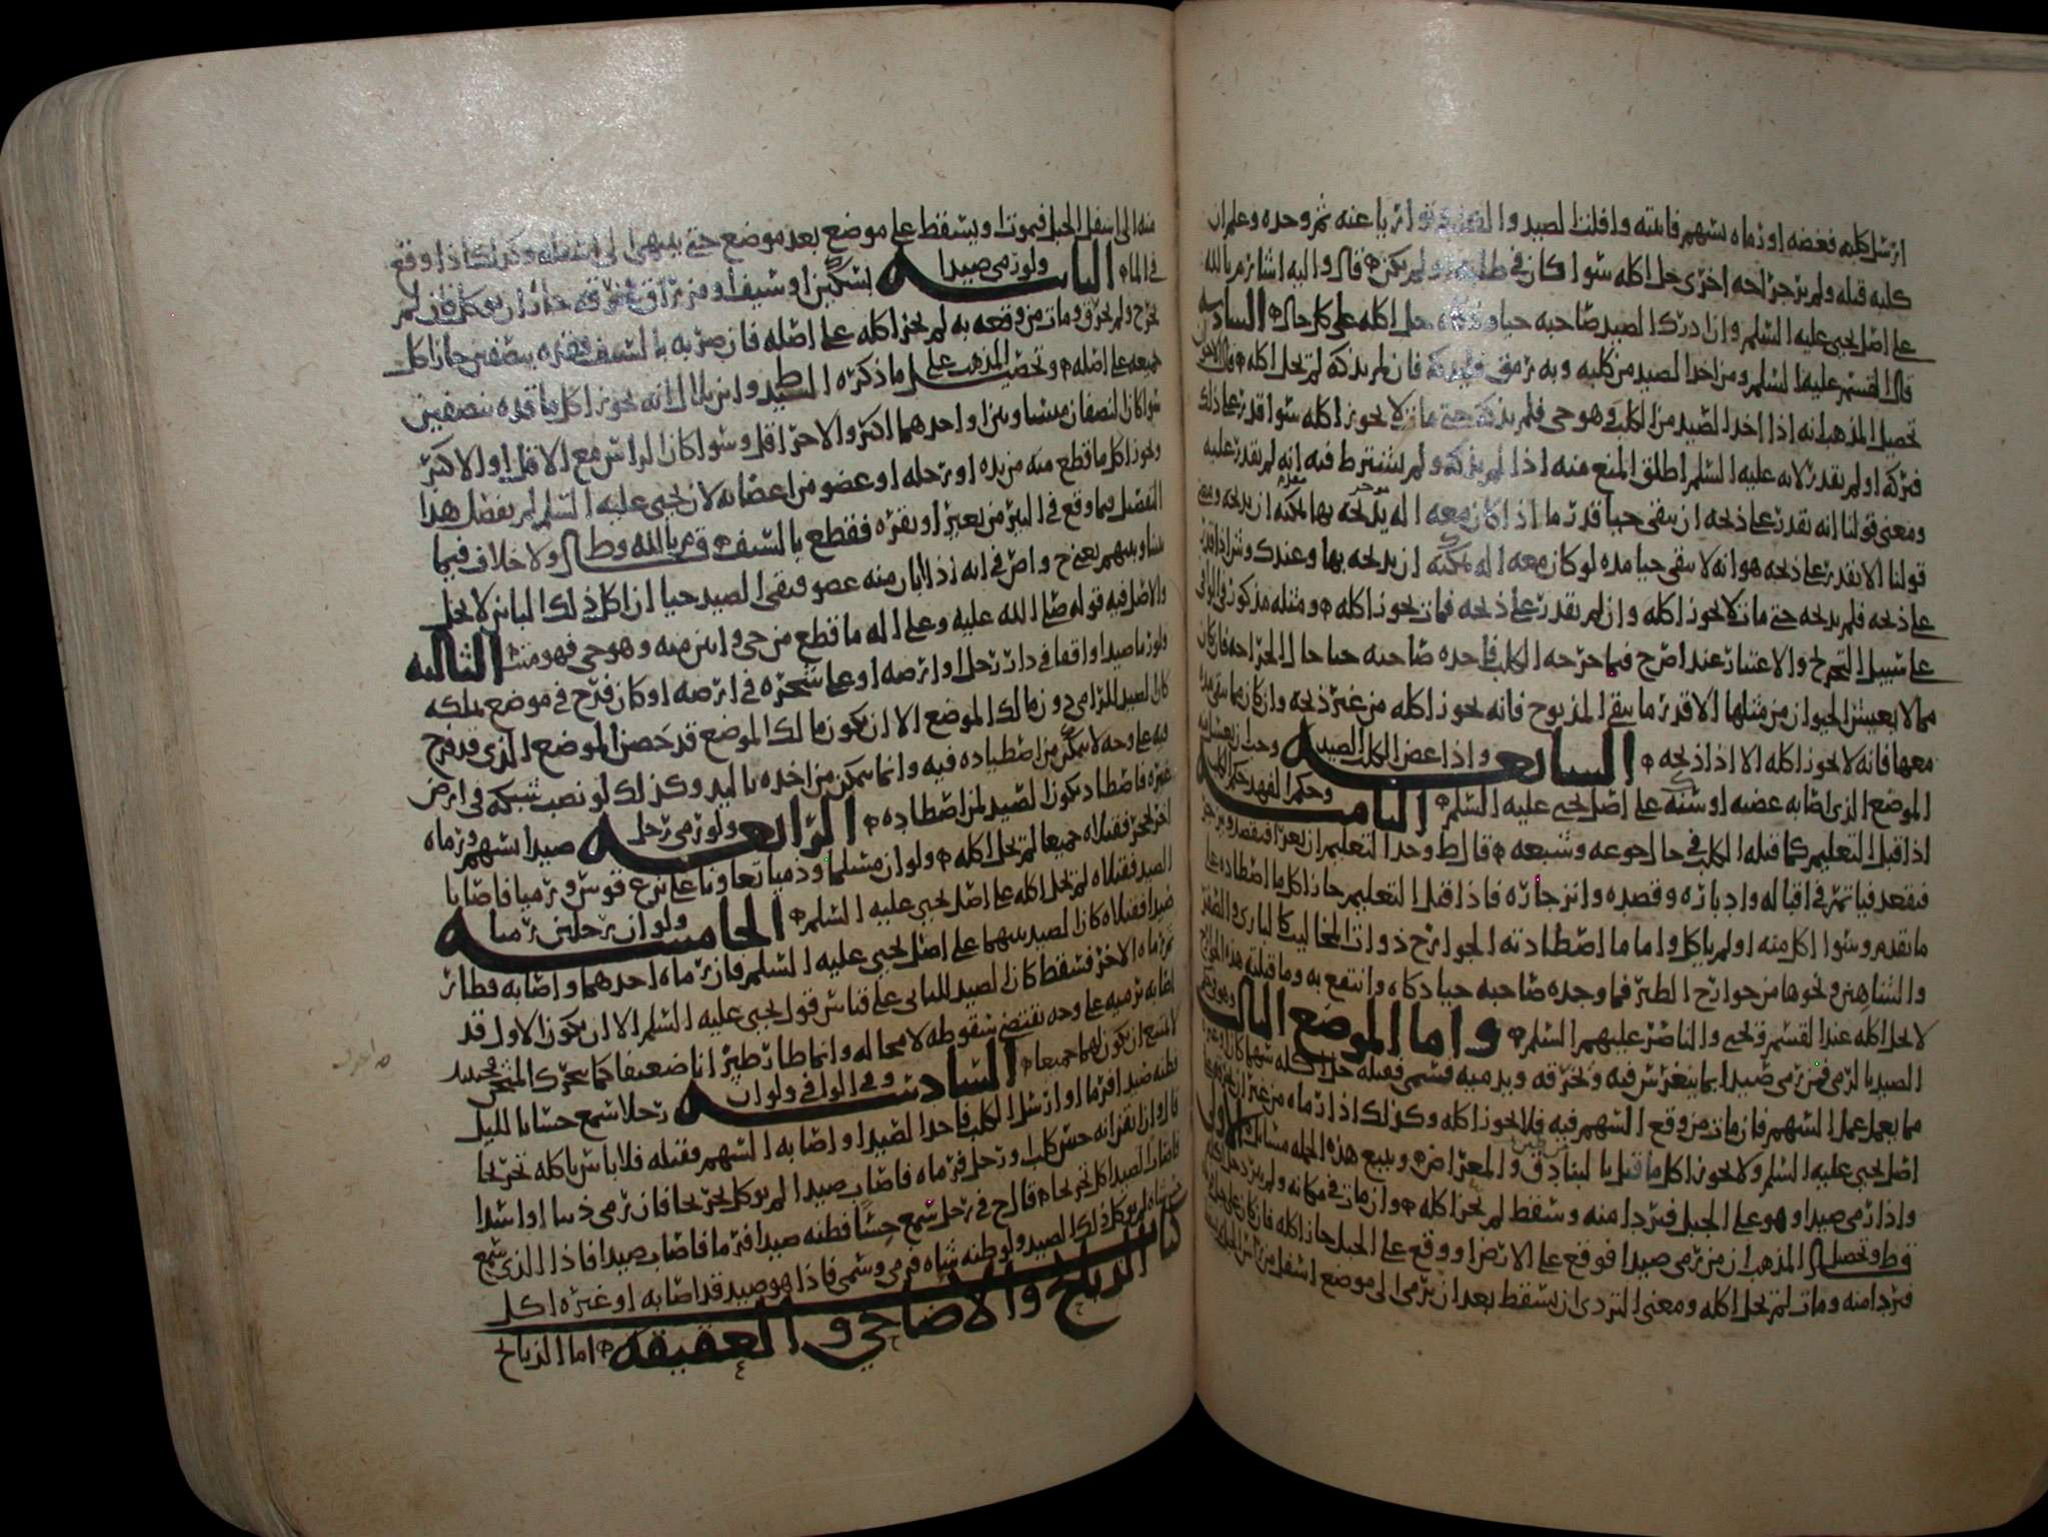 ارسل كلبه فعضه او رماه بسهم فاثبته وافلت الصيد وا تواريا عنه ثم وحده وعلم ان
كلبه قتله ولم ير جراحه اخرى حل اكله سوا كان في طلبه او لم يكن قال و اليه اشار م بالله
على اصل يحيى عليه السلم وان ادرك الصيد صاحبه حيا وذكاه حل اكله على كل حال السادسه
قال القسم عليه السلم ومن اخذ الصيد من كلبه وبه رمق فليذكه فان لم يذكه لم يحل اكله
تحصيل المذهب انه اذا اخذ الصيد من الكلب وهو حي فلم يذكه حتى مات لا يجوز اكله سوا قدر على ذلك
فتركه او لم يقدر لانه عليه السلم اطلق المنع منه اذا لم يذكه ولم يشترط فيه انه لم يقدر عليه
ومعنى قولنا انه يقدر على ذبحه ان يبقى حيا قدر ما اذا كان معه اله يذبحه بها يمكنه ان يذبحه
قولنا لا يقدر على ذبحه هو انه لا يبقى حيا مده لو كان معه اله يمكنه ان يذبحه بها وعندك و
على ذبحه فلم يذبحه حتى مات لا يجوز اكله وان لم يقدر على ذبحه فمات يجوز اكله ومثله مذكور في الوافي
على سبيل التخريج والاعتبار عند اصرح فيما جرحه الكلب فاخذه صاحبه حيا حال الجراحه فان كان
مما لا يعيش الحيوان من مثلها الا قدر ما يبقى المذبوح فانه يجوز اكله من غير ذبحه وان كان مما
معها فانه لا يجوز اكله الا اذا ذبحه السابعه واذا عض الكلب الصيد وجب ان يغسل
الموضع الذي اصابه عضه او سنه على اصل يحيى عليه السلم الثامنه وحكم الفهد حكم الكلب
اذا قبل التعليم كما قبله الكلب في حال جوعه وشبعه قال ط وحد التعليم ان يغرا فيقصد ويزجر
فيقعد فياتمر في اقباله وادباره وقصده وانزجاره فاذا قبل التعليم جاز اكل ما اصطاده على
ما تقدم وسوا اكل منه او لم ياكل واما ما اصطادته الجوارح ذوات المخاليب كالبازي والصقر
والشاهين ونحوها من جوارح الطير فما وجده صاحبه حيا ذكاه وانتفع به وما قتلته هذه الجوارح
لا يحل اكله عند القسم ويحيى والناصر عليهم السلم واما الموضع الثالث وهو في حكم
الصيد بالرمي فمن رمى صيدا بما ينغرس فيه ويخرقه ويدميه فسمى فقتله حل اكله سهما كان او غيره
مما يعمل عمل السهم فان مات من وقع السهم فيه فلا يجوز اكله وكذلك اذا رماه من غير ان
اصل يحيى عليه السلم ولا يجوز اكل ما قتل بالبنادق والمعراض ويتبع هذه الجمله مسائل الاولى
واذا رمى صيدا وهو على الجبل فتردا منه وسقط لم يجز اكله وان مات في مكانه ولم يترد حل اكله
ق وط وتحصيل المذهب ان من رمى صيدا فوقع على الارض او وقع على الجبل جاز اكله فان كان على جبل
فتردا منه ومات لم يحل اكله ومعنى التردى ان يسقط بعد ان يرمى الى موضع اسفل من
منه الى اسفل الجبل فيموت او يسقط على موضع بعد موضع حتى ينتهى الى اسفله وكذلك اذا وقع
في الماء الثانيه ولو رمى صيدا بسكين او سيف او مزراق فخرقه جاز ان يوكل فان لم
يجرح ولم يخرق ومات من وقعه به لم يجز اكله على اصله فان ضربه بالسيف فقده بنصفين جاز اكل
جميعه على اصله وتحصيل المذهب على ما ذكره السيد ط وابن بلال انه يجوز اكل ما قده بنصفين
سوا كان النصفان متساويين او احدهما اكثر والاخر اقل وسوا كان الراس مع الاقل او الاكثر
ويجوز اكل ما قطع منه من يده او رجله او عضو من اعضائه لان يحيى عليه السلم لم يفصل هذا
التفصيل فيما وقع في البير من بعير او بقره فقطع بالسيف قال م بالله وط ولا خلاف فيما
بيننا وبينهم يعني ح واص في انه اذا ابان منه عضو فبقى الصيد حيا ان اكل ذلك البائن لا يحل
والاصل فيه قوله صلى الله عليه وعلى اله ما قطع من حي وابين منه وهو حي فهو ميت الثالثه
ولو رما صيدا واقفا في دار رجل او ارضه او على شجره في ارضه او كان فرخ في موضع يملكه
كان الصيد للرامي دون مالك الموضع الا ان يكون مالك الموضع قد حصن الموضع الذي قد فرخ
فيه على وجه لا يتمكن من اصطياده فيه وانما يتمكن من اخذه باليد وكذلك لو نصب شبكه في ارض
غيره فاصطاد يكون الصيد لمن اصطاده الرابعه ولو رمى رجل صيدا بسهم ورماه
اخر بحجر فقتلاه جميعا لم يحل اكله ولو ان مسلما وذميا تعاونا على نزع قوس ورميا فاصابا
الصيد فقتلاه لم يحل اكله على اصل يحيى عليه السلم الخامسه ولو ان رجلين رميا
صيدا فقتلاه كان الصيد بينهما على اصل يحيى عليه السلم فان رماه احدهما واصابه فطار
ثم رماه الاخر فسقط كان الصيد للثاني على قياس قول يحيى عليه السلم الا ان يكون الاول قد
اصابه برميه على وجه يقتضي سقوطه لا محاله وانما طار طيرانا ضعيفا كما يتحرك المذبوح فحينئذ
لا يمتنع ان يكون لهما جميعا السادسه وفي الوافي ولو ان رجلا سمع حسا بالليل
فظنه صيدا فرما او ارسل الكلب فاخذ الصيد او اصابه السهم فقتله فلا باس باكله تخريجا
قال وان يقن انه حس كلب ورجل فرماه فاصاب صيدا لم يوكل تخريجا فان رمى ذيبا او اسدا
فاصاب الصيد اكل تخريجا قال ح في رجل سمع حسا فظنه صيدا فرما فاصاب صيدا فاذا الذي سمع
حس شاه لم يوكل ذلك الصيد ولو ظنه شاه فرمى وسمى فاذا هو صيد قد اصابه او غيره اكل
كتاب الذبائح والاضاحي والعقيقه اما الذبائح